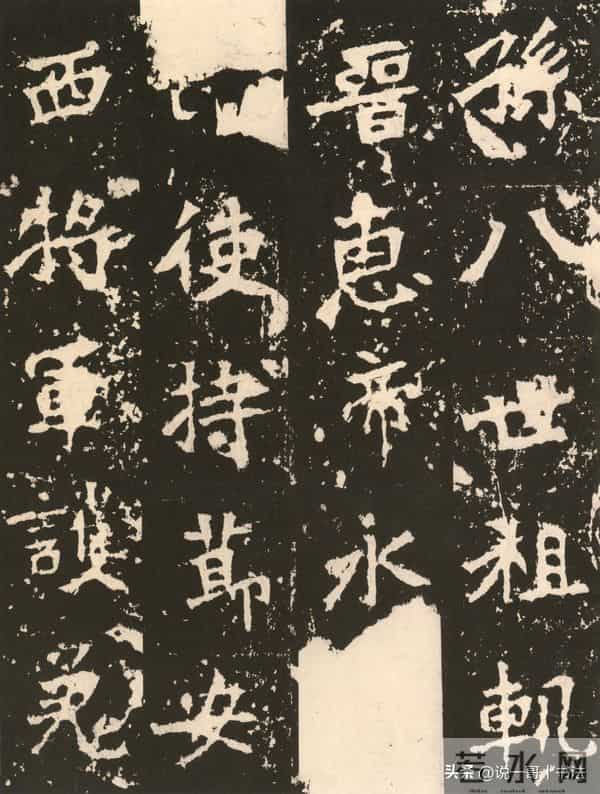 孫八世祖軌
晉惠帝永
使持莭安
西將軍護羌
头条 @说一哥书法